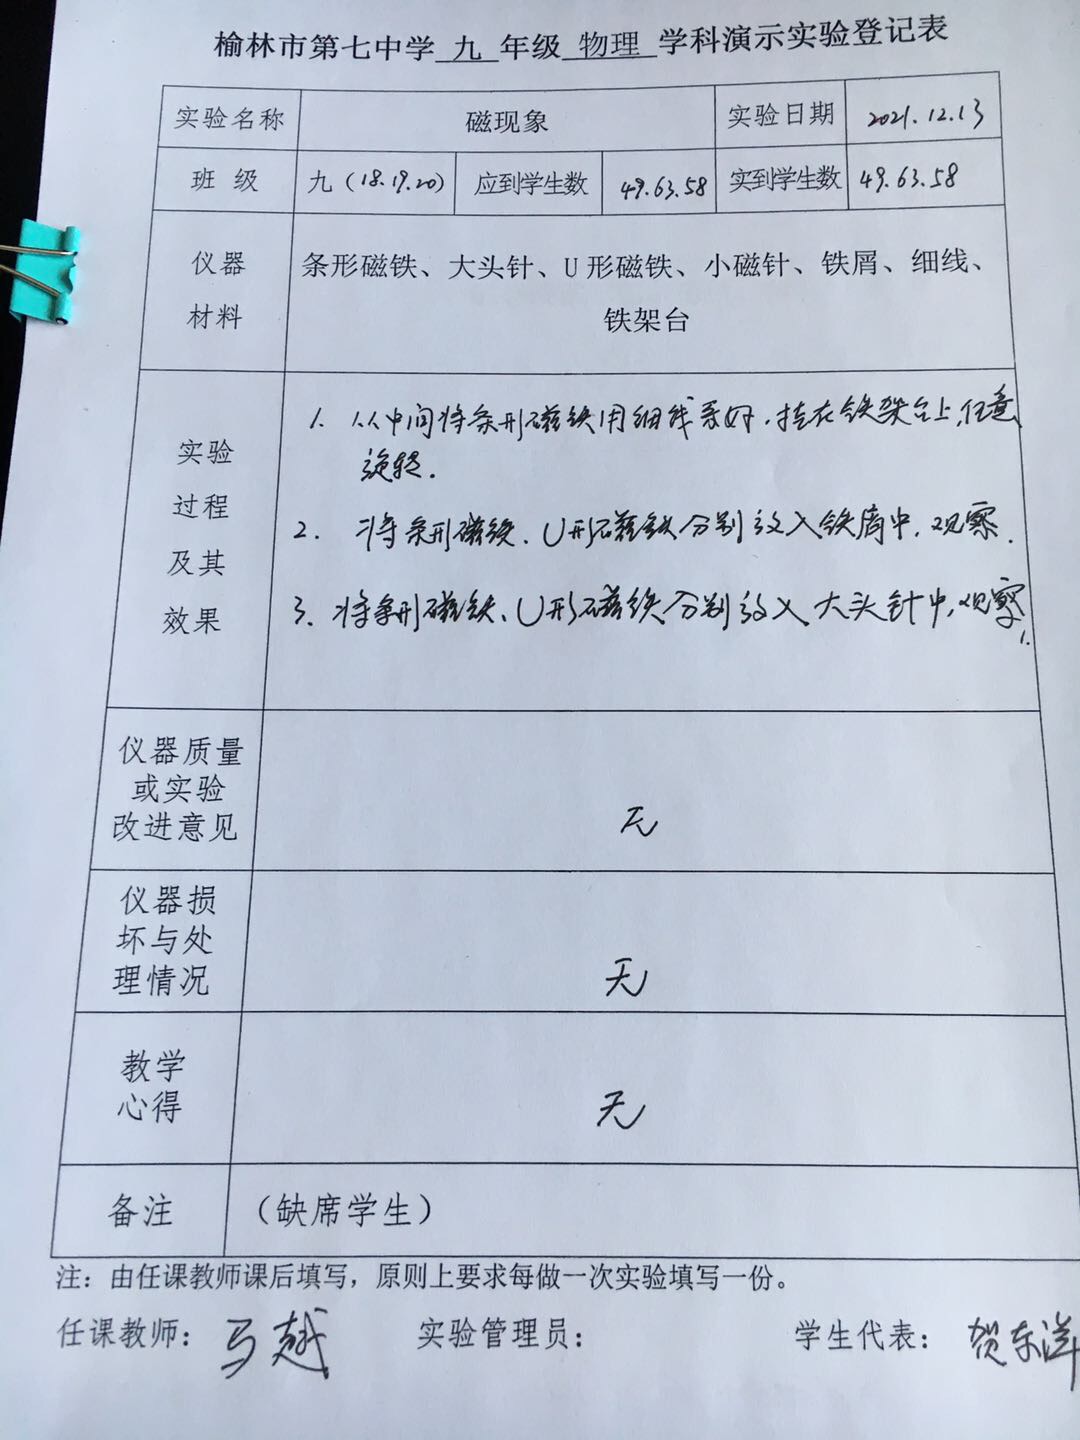 榆林市第七中学 九 年级 物理 学科演示实验登记表
实验名称 磁现象 实验日期 2021.12.13
班 级 九（18.19.20） 应到学生数 49.63.58 实到学生数 49.63.58
仪器
材料
条形磁铁、大头针、U 形磁铁、小磁针、铁屑、细线、
铁架台
实验
过程
及其
效果
1. 从中间将条形磁铁用细线系好.挂在铁架台上,任意
旋转.
2. 将条形磁铁、U形磁铁分别放入铁屑中,观察.
3. 将条形磁铁、U形磁铁分别放入大头针中,观察.
仪器质量
或实验
改进意见
无
仪器损
坏与处
理情况
无
教学
心得
无
备注 （缺席学生）
注：由任课教师课后填写，原则上要求每做一次实验填写一份。
任课教师： 马越 实验管理员： 学生代表： 贺东洋